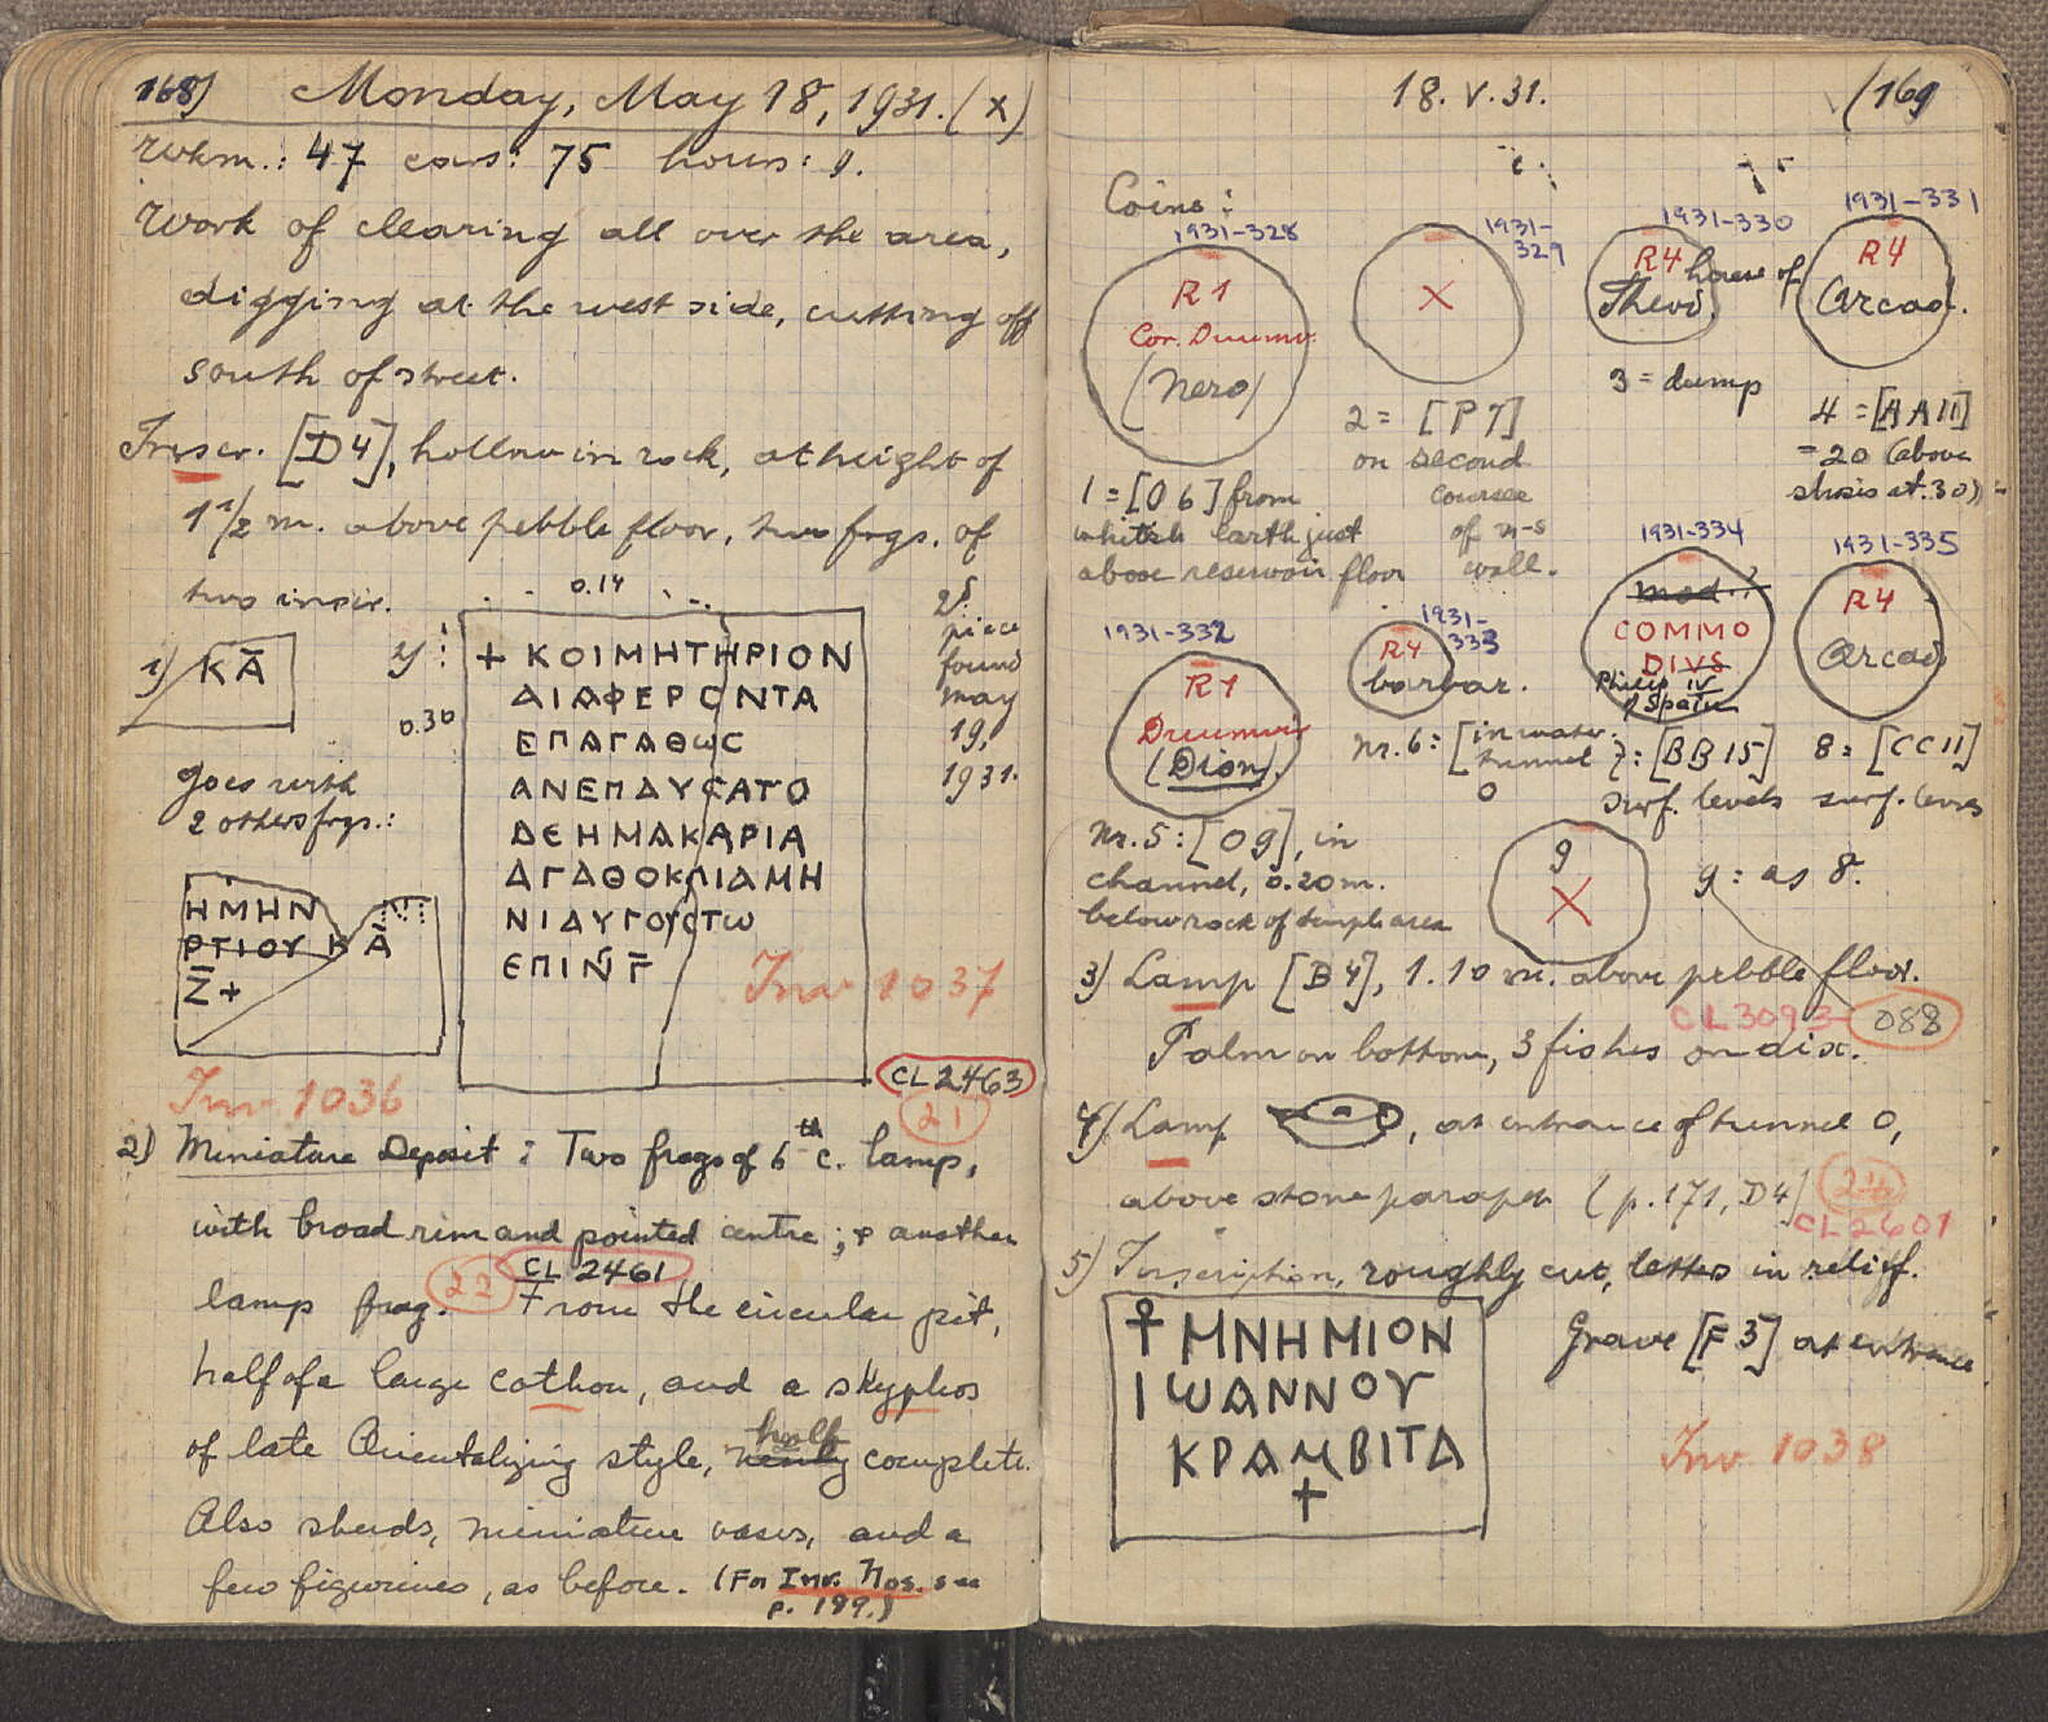 168) Monday, May 18, 1931. (x)
Wkm.: 47 cars: 75 hours: 9.
Work of clearing all over the area,
digging at the west side, cutting off
south of street.
Inscr. [D4], hollow in rock, at height of
1 1/2 m. above pebble floor, two frgs. of
two inscr.
0.14
1) ΚĀ
2)
0.30
+ ΚΟΙΜΗΤΗΡΙΟΝ
ΔΙΑΦΕΡΟΝΤΑ
ΕΠΑΓΑΘωϹ
ΑΝΕΠΑΥϹΑΤΟ
ΔΕΗΜΑΚΑΡΙΑ
ΑΓΑΘΟΚΛΙΑΜΗ
ΝΙΑΥΓΟΥϹΤω
ΕΠΙΝ̄ Γ̄
2d.
piece
found
may
19,
1931.
goes with
2 others frgs.:
ΗΜΗΝ
ΡΤΙΟΥ Κ Ā
Ζ̄ +
Inv 1037
Inv. 1036
CL 2463
21
2) Miniature Deposit: Two frags of 6th c. lamp,
with broad rim and pointed centre; & another
22 CL 2461
lamp frag. From the circular pit,
half of a large cothon, and a skyphos
half
of late Orientalizing style, nearly complete.
Also sherds, miniature vases, and a
few figurines, as before. (For Inv. Nos. see
p. 189.)
18. V. 31. (169
Coins:
1931-328
R1
Cor. Duumv.
(Nero)
1931-
329
X
1931-330
R4 house of
Theod.
1931-331
R4
Arcad.
1 = [O 6] from
whitish earth just
above reservoir floor
2 = [P7]
on second
course
of n-s
wall.
3 = dump
4 = [AA11]
= 20 (above
stosis at .30)
1931-332
R1
Duumvir
(Dion).
1931-
333
R4
barbar.
1931-334
mod.?
COMMO
DIVS
Philip IV
of Spain
1931-335
R4
Arcad.
Nr. 5: [O9], in
channel, 0.20 m.
below rock of temple area
Nr. 6: [in water
tunnel
O
7: [BB15]
surf. levels
8: [CC11]
surf. levels
9
X
9: as 8.
3) Lamp [B4], 1.10 m. above pebble floor.
CL3093 088
Palm on bottom, 3 fishes on disc.
4) Lamp , at entrance of tunnel O,
above stone parapet (p. 171, D4) 24
CL2601
5) Inscription, roughly cut, letters in relief.
⳨ ΜΝΗΜΙΟΝ
ΙωΑΝΝΟΥ
ΚΡΑΜΒΙΤΑ
+
Grave [F3] at entrance
Inv. 1038